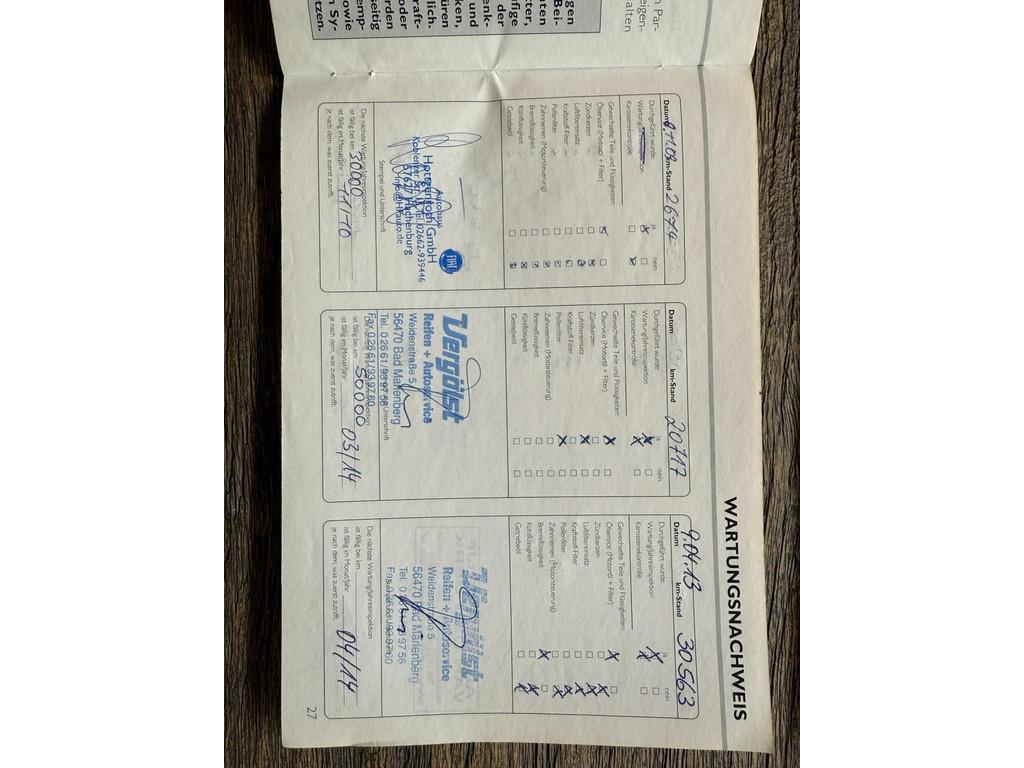 WARTUNGSNACHWEIS
Datum 9.11.09 km-Stand
Durchgeführt wurde: ja nein
Wartung/Jahresinspektion
Karosseriekontrolle
Gewechselte Teile und Flüssigkeiten:
Ölservice (Motoröl + Filter)
Zündkerzen
Luftfiltereinsatz
Kraftstoff-Filter
Pollenfilter
Zahnriemen (Motorsteuerung)
Bremsflüssigkeit
Kühlflüssigkeit
Getriebeöl
FIAT
Autohaus
Hottgenroth GmbH
Koblenzer Str. Tel. 02662-939446
57627 Hachenburg
info@HFauto.de
Stempel und Unterschrift
Die nächste Wartung/Jahresinspektion
ist fällig bei km 30000
ist fällig im Monat/Jahr 11/10
je nach dem, was zuerst zutrifft.
Datum km-Stand 20717
Durchgeführt wurde: ja nein
Wartung/Jahresinspektion
Karosseriekontrolle
Gewechselte Teile und Flüssigkeiten:
Ölservice (Motoröl + Filter)
Zündkerzen
Luftfiltereinsatz
Kraftstoff-Filter
Pollenfilter
Zahnriemen (Motorsteuerung)
Bremsflüssigkeit
Kühlflüssigkeit
Getriebeöl
Vergölst
Reifen + Autoservice
Weidenstraße 5
56470 Bad Marienberg
Tel. 0 26 61 / 93 97 58
Fax 0 26 61 / 93 97 60
ist fällig bei km 50000
ist fällig im Monat/Jahr 03/14
je nach dem, was zuerst zutrifft.
9.04.13 30563
Datum km-Stand
Durchgeführt wurde: ja nein
Wartung/Jahresinspektion
Karosseriekontrolle
Gewechselte Teile und Flüssigkeiten:
Ölservice (Motoröl + Filter)
Zündkerzen
Luftfiltereinsatz
Kraftstoff-Filter
Pollenfilter
Zahnriemen (Motorsteuerung)
Bremsflüssigkeit
Kühlflüssigkeit
Getriebeöl
Vergölst
Reifen + Autoservice
Weidenstraße 5
56470 Bad Marienberg
Die nächste Wartung/Jahresinspektion
ist fällig bei km
ist fällig im Monat/Jahr 04/14
je nach dem, was zuerst zutrifft.
27